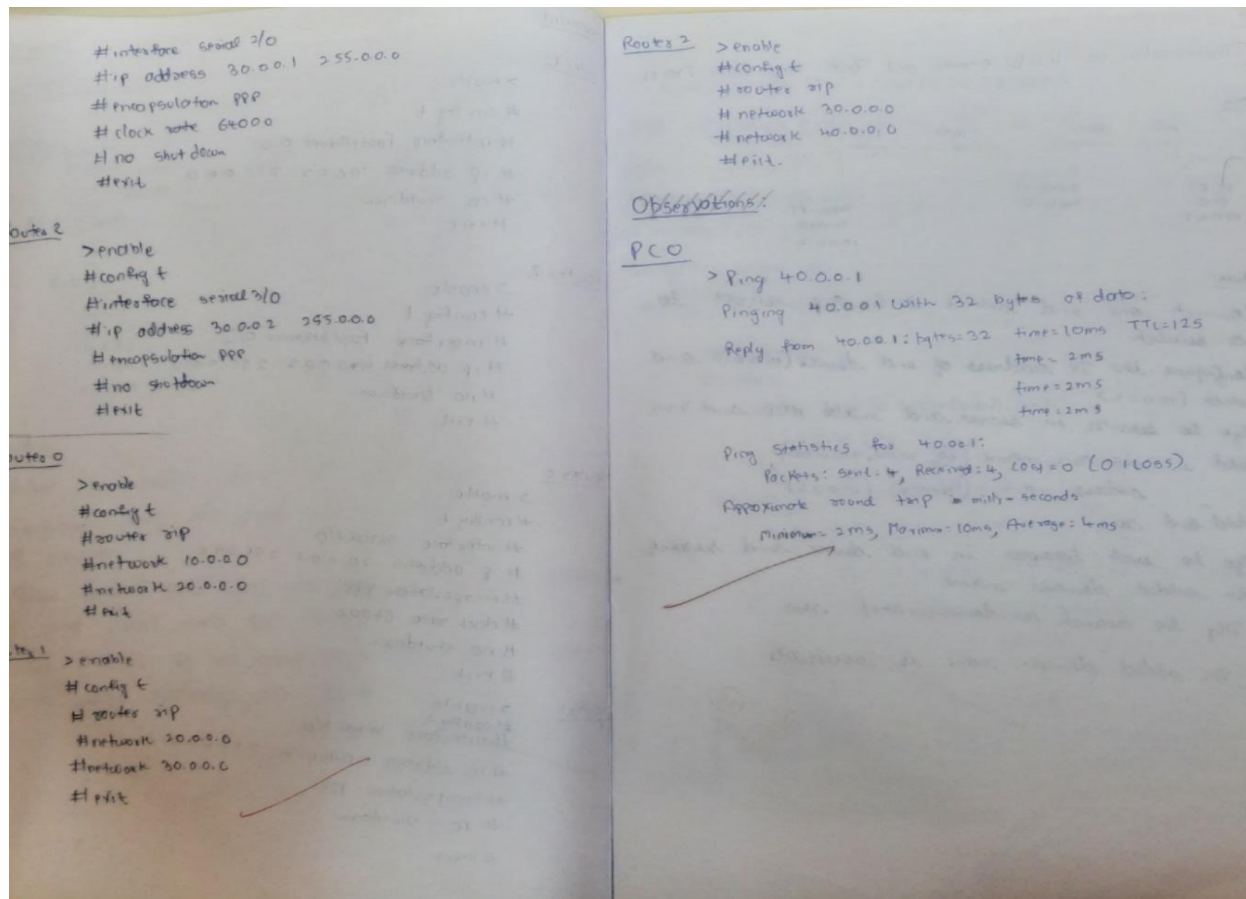 #interface serial 2/0
#ip address 30.0.0.1 255.0.0.0
#encapsulation PPP
#clock rate 64000
#no shut down
#exit
outer 2
>enable
#config t
#interface serial 3/0
#ip address 30.0.0.2 255.0.0.0
#encapsulation PPP
#no shutdown
#exit
outer 0
>enable
#config t
#router rip
#network 10.0.0.0
#network 20.0.0.0
#exit
uter 1
>enable
#config t
#router rip
#network 20.0.0.0
#network 30.0.0.0
#exit
Router 2
>enable
#config t
#router rip
#network 30.0.0.0
#network 40.0.0.0
#exit.
Observations:
PC0
>Ping 40.0.0.1
Pinging 40.0.0.1 with 32 bytes of data:
Reply from 40.0.0.1: bytes=32 time=10ms TTL=125
time= 2ms
time=2ms
time=2ms
Ping statistics for 40.0.0.1:
Packets: Sent: 4, Received: 4, Lost=0 (0% Loss)
Approximate round trip milli-seconds
Minimum= 2ms, Maximum=10ms, Average=4ms